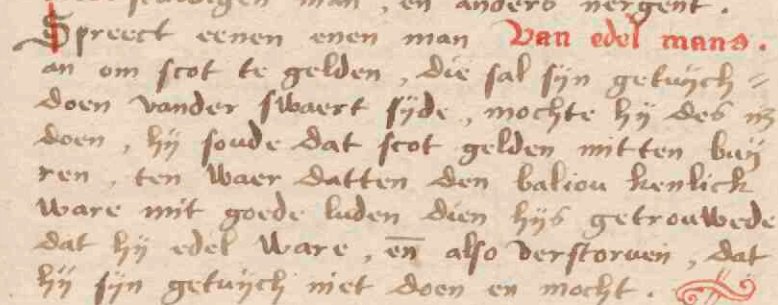 man, en anders nergent.
Spreect eenen enen man Van edel mans.
an om scot te gelden, die sal sijn getuijch=
doen vander swaert sijde, mochte hij des n
doen, hij soude dat scot gelden mitten buij
ren, ten waer datten den baliou kenlick
ware mit goede luden dien hijs getrouwede
dat hij edel ware, en̅ also verstorven, dat
hij sijn getuijch niet doen en mocht.